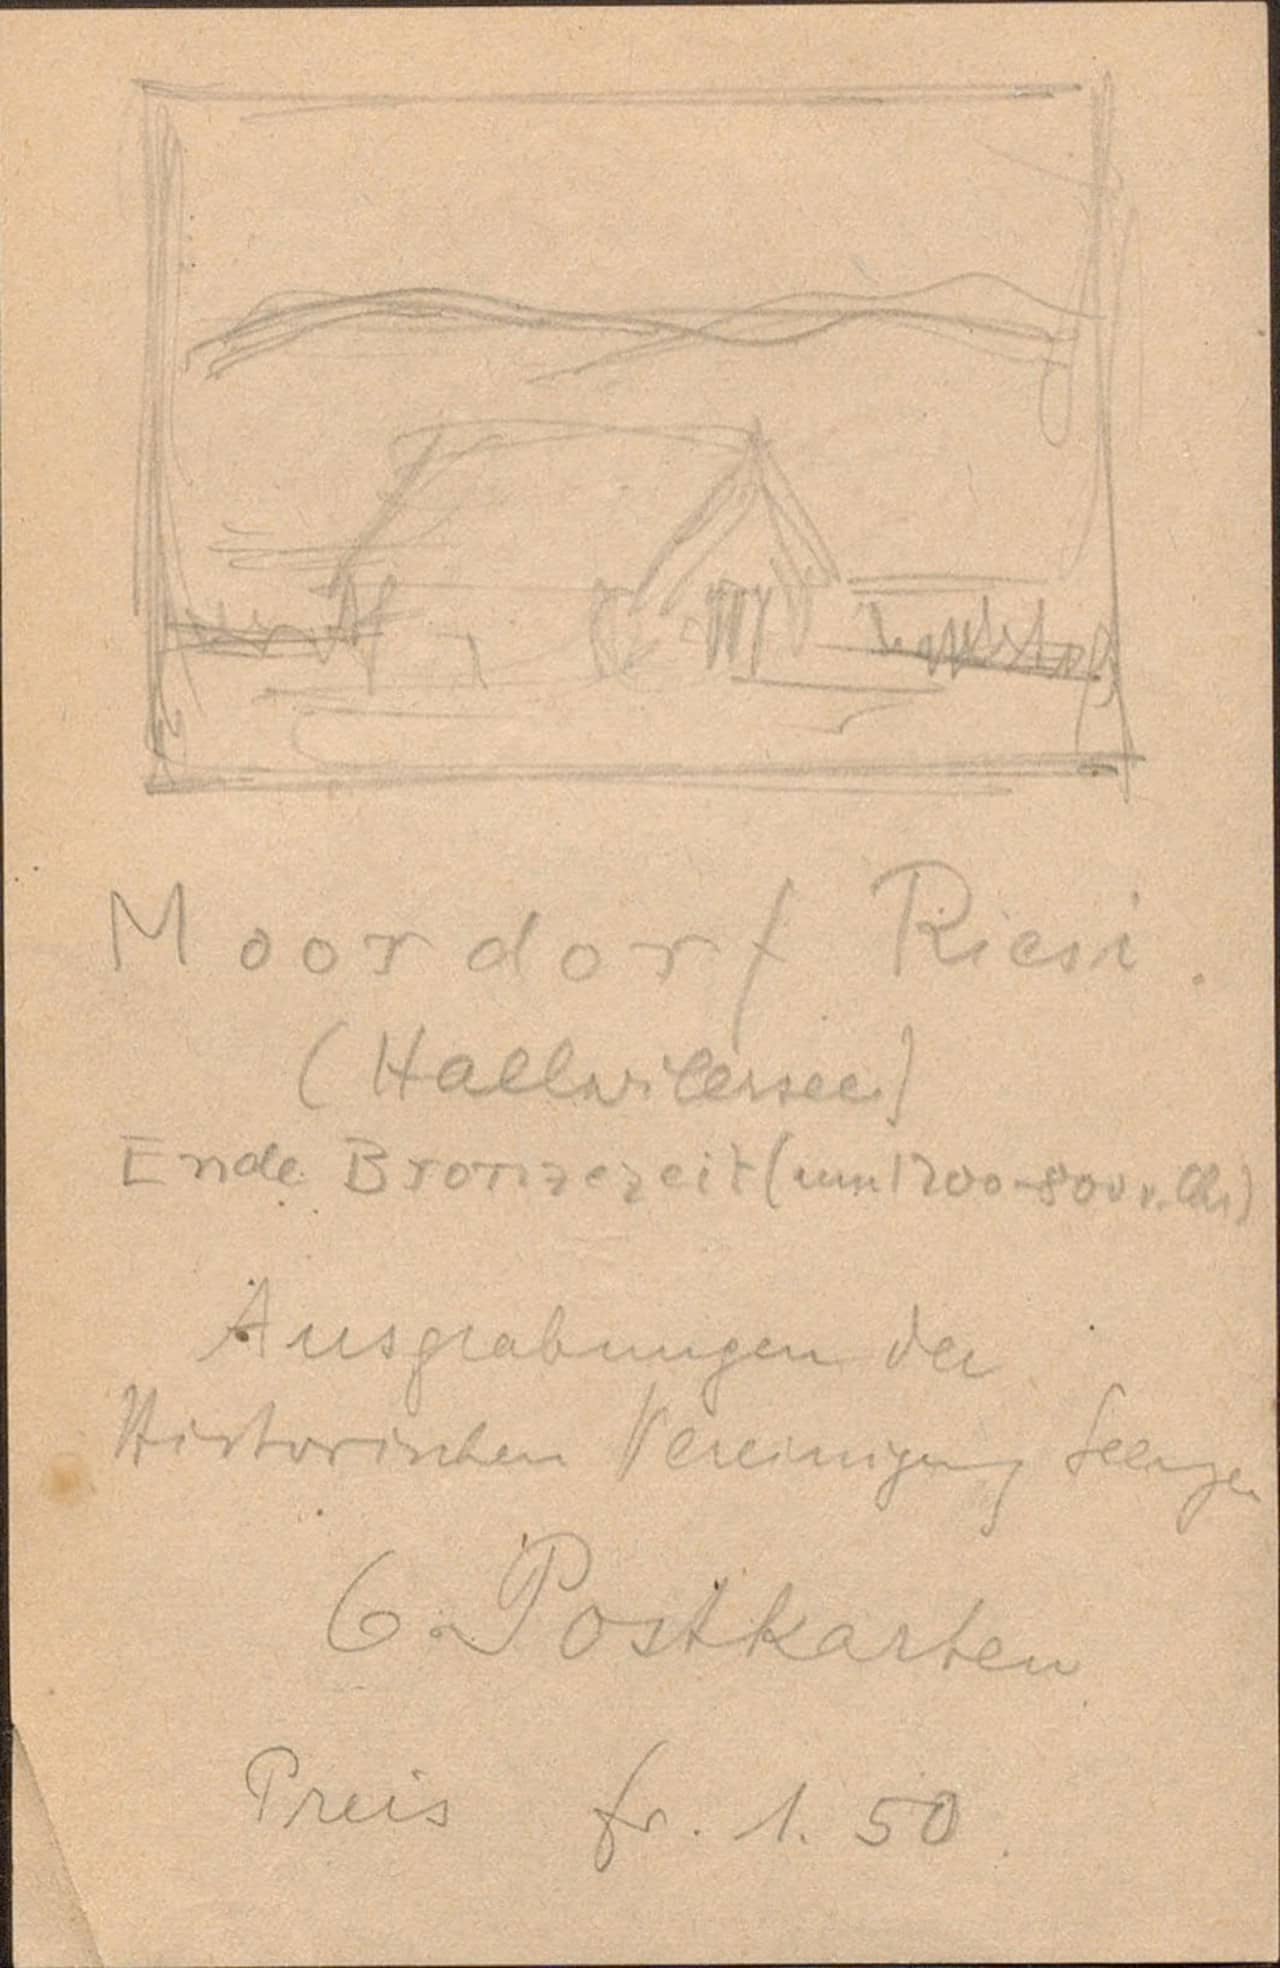 Moordorf Riesi.
(Hallwilersee)
Ende Bronzezeit (um 1200-800 v. Chr)
Ausgrabungen der
Historischen Vereinigung Seengen
6 Postkarten
Preis fr. 1.50